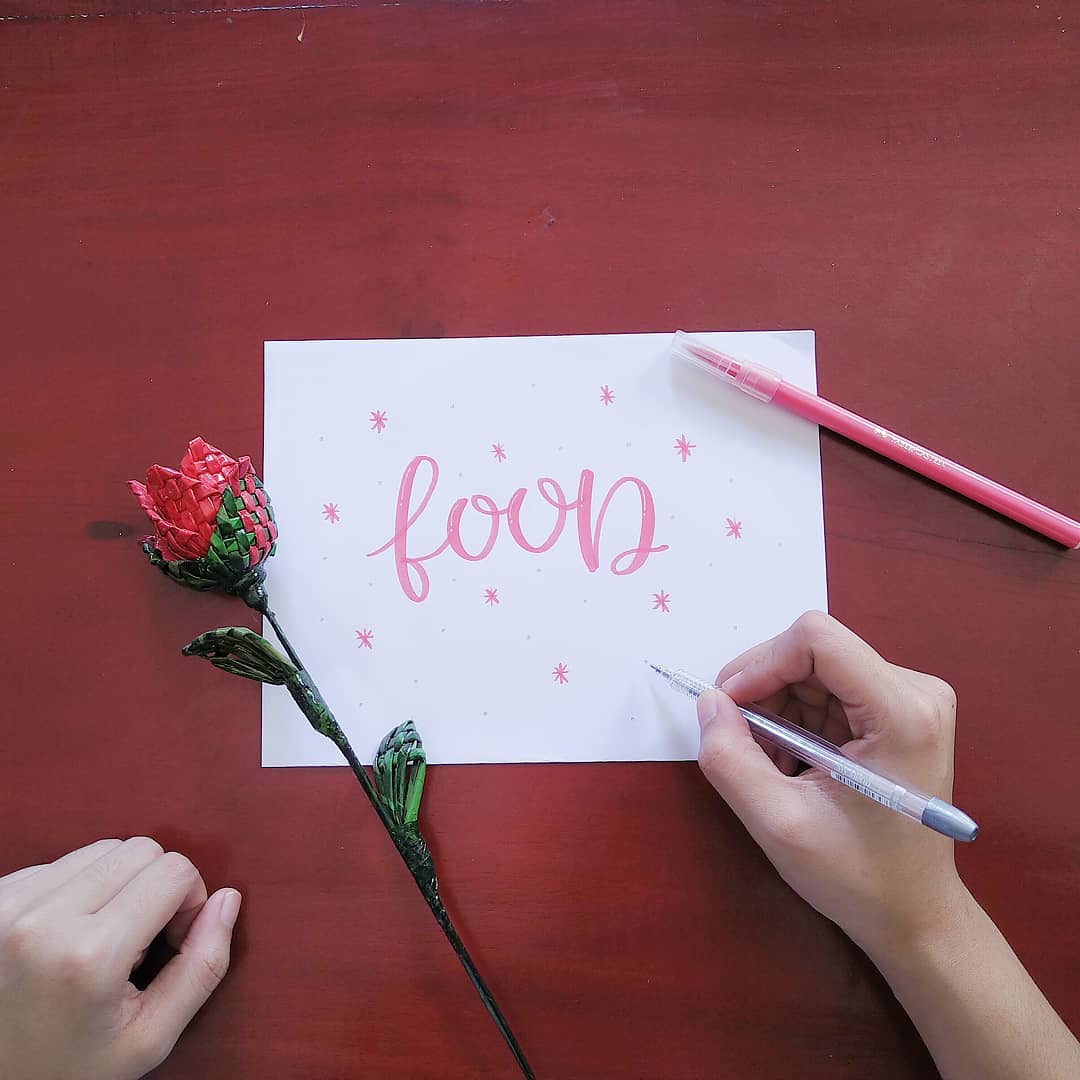 fooD
FABER-CASTELL